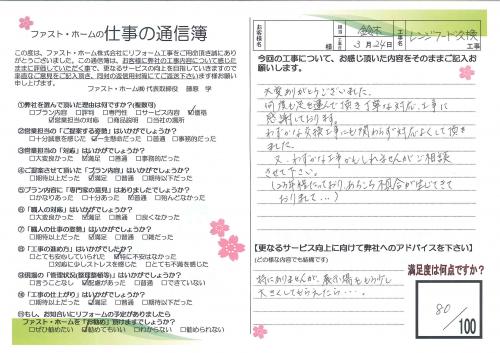 ファスト・ホームの仕事の通信簿
この度は、ファスト・ホーム株式会社にリフォーム工事をご用命頂き誠にありがとうございました。この通信簿は、お客様に弊社の工事内容について感じたままに評価していただく事で、更なるサービスの向上を目指していきますので率直なご意見をご記入頂き、同封の返信用封筒にてご返送下さいます様お願い申し上げます。
ファスト・ホーム㈱代表取締役 藤原 学
①弊社を選んで頂いた理由は何ですか?(複数可)
□プラン内容 □評判 □専門性 □サービス内容 ☑価格
□営業担当の対応 □商品説明 □当社の識別
②営業担当の「ご提案する姿勢」はいかがでしょうか?
□十分誠意を感じた ☑一生懸命だった □普通 □事務的だった
③営業担当の「対応」はいかがでしょうか?
□大変良かった ☑満足 □普通 □事務的だった
④ご提案させて頂いた「プラン内容」はいかがでしたか?
□期待以上だった ☑満足 □普通 □期待以下だった
⑤プラン内容に「専門家の意見」はありましたでしょうか?
□かなりあった □十分あった ☑普通 □殆んどなかった
⑥「職人の対応」はいかがでしょうか?
□大変良かった ☑満足 □普通 □良くなかった
⑦「職人の仕事の姿勢」はいかがでしょうか?
□期待以上だった ☑満足 □普通 □雑だった
⑧「工事の進め方」はいかがでしたか?
□とても安心していられた ☑特に不安はなかった
□対応に少しストレスを感じた □とても不満を感じた
⑨現場の「管理状況(整理整頓等)」はいかがでしょうか?
□言うことなし ☑配慮があった □普通 □できていない
⑩「工事の仕上がり」はいかがでしょうか?
□期待以上だった ☑満足 □普通 □期待以下だった
⑪もし、お知合いにリフォームの予定がありましたら
ファスト・ホームを「お勧め」頂けますでしょうか?
□ぜひ勧めたい ☑勧めてもいい □わからない □勧められない
お客様名
様
担当 鈴木
工事日 3月24日
工事名 レンジフード交換
工事
今回の工事について、お感じ頂いた内容をそのままご記入お願いします。
大変ありがとうございました。
何度も足を運んで頂き丁寧な対応、工事に
感謝しております。
わずかな交換工事にも関わらず対応よくして頂き
ました。
又、わずかな工事かもしれませんがご相談
させて下さい。
(23年経っており、あちらこちら不具合が生じてきて
おりまして...)
【更なるサービス向上に向けて弊社へのアドバイスを下さい】
(どの様な内容でも結構です)
特にありませんが、展示場をもう少し
大きくしてもらえたら・・・。
満足度は何点ですか?
80
/100